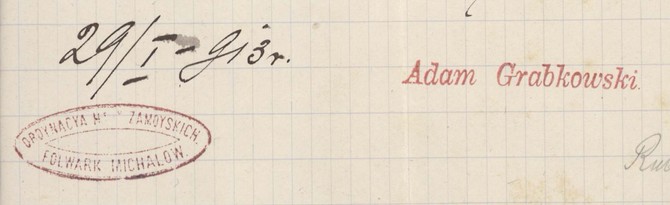 29/I - 913 r.
Adam Grabkowski.
ORDYNACYA Hr. ZAMOYSKICH.
FOLWARK MICHALÓW.